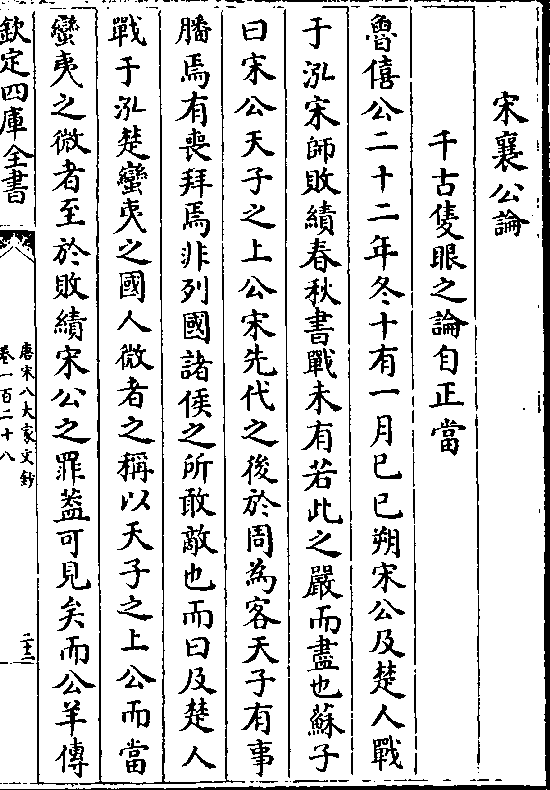 宋襄公論
千古隻眼之論自正當
魯僖公二十二年冬十有一月己巳朔宋公及楚人戰
于泓宋師敗績春秋書戰未有若此之嚴而盡也蘇子
曰宋公天子之上公宋先代之後於周為客天子有事
膰焉有喪拜焉非列國諸侯之所敢敵也而曰及楚人
戰于泓楚蠻夷之國人微者之稱以天子之上公而當
蠻夷之微者至於敗績宋公之罪葢可見矣而公羊傳
欽定四庫全書
唐宋八大家文鈔
卷一百二十八
二十三